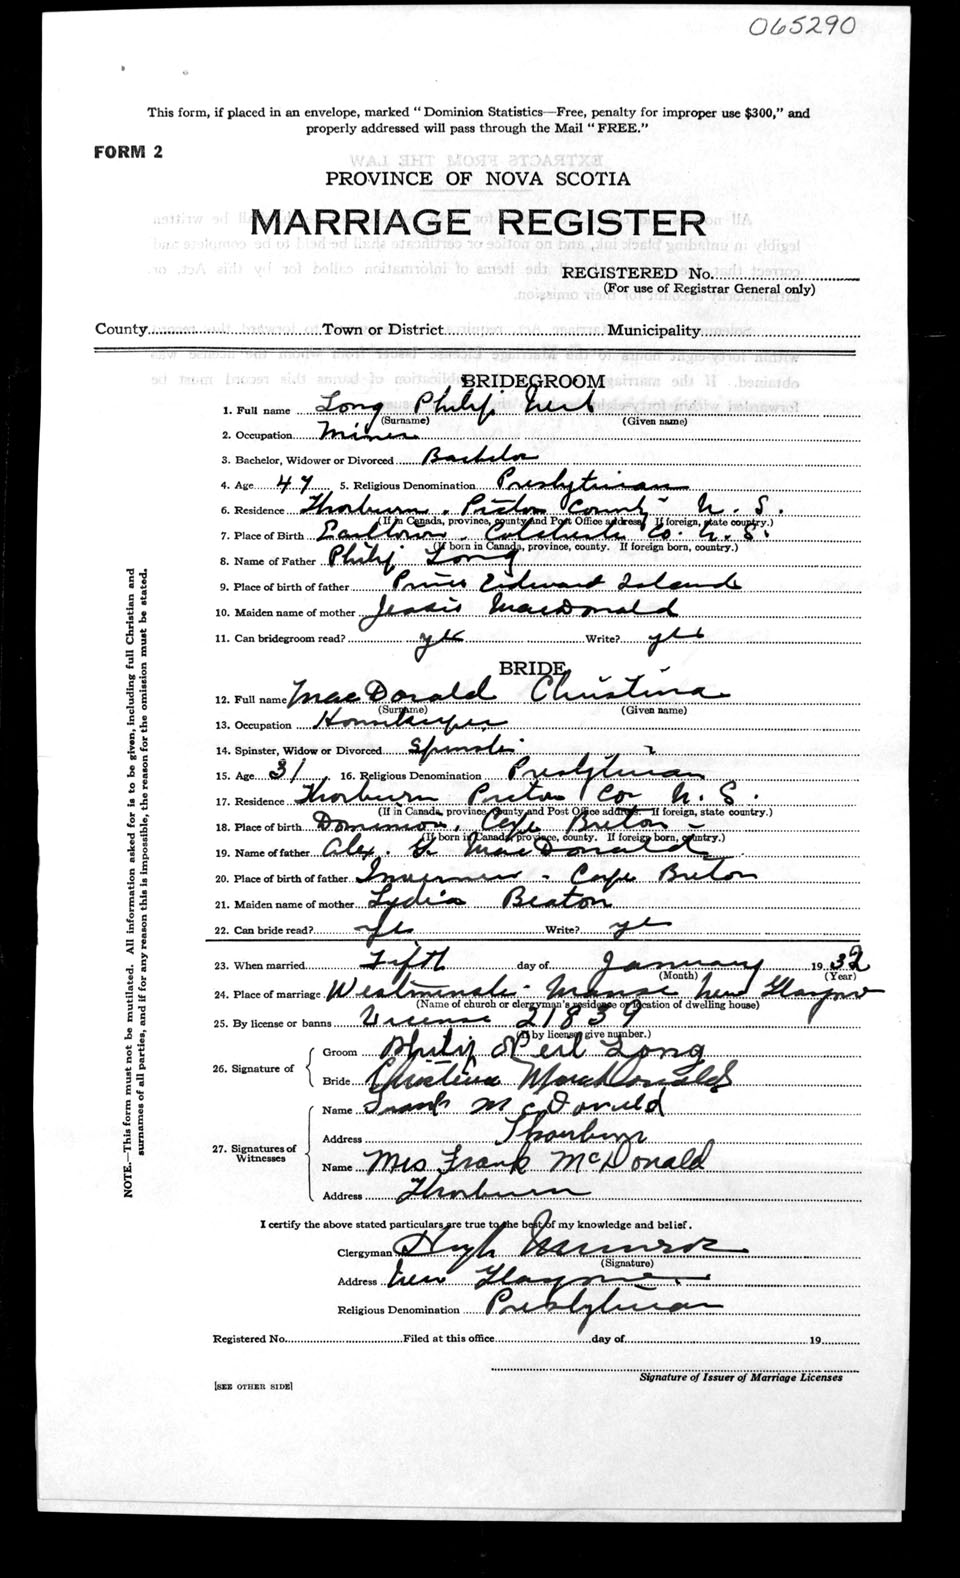 065290
This form, if placed in an envelope, marked "Dominion Statistics—Free, penalty for improper use $300," and
properly addressed will pass through the Mail "FREE."
FORM 2
PROVINCE OF NOVA SCOTIA
MARRIAGE REGISTER
REGISTERED No.
(For use of Registrar General only)
County Town or District Municipality
BRIDEGROOM
1. Full name Long Philip Neil
(Surname) (Given name)
2. Occupation Miner
3. Bachelor, Widower or Divorced Bachelor
4. Age 47 5. Religious Denomination Presbyterian
6. Residence Thorburn, Pictou County N. S.
(If in Canada, province, county and Post Office address. If foreign, state country.)
7. Place of Birth Earltown, Colchester Co. N. S.
(If born in Canada, province, county. If foreign born, country.)
8. Name of Father Philip Long
9. Place of birth of father Prince Edward Island
10. Maiden name of mother Jessie MacDonald
11. Can bridegroom read? yes Write? yes
BRIDE
12. Full name MacDonald Christina
(Surname) (Given name)
13. Occupation Housekeeper
14. Spinster, Widow or Divorced Spinster
15. Age 31 16. Religious Denomination Presbyterian
17. Residence Thorburn Pictou Co. N. S.
(If in Canada, province, county and Post Office address. If foreign, state country.)
18. Place of birth Dominion, Cape Breton
(If born in Canada, province, county. If foreign born, country.)
19. Name of father Alex. G. MacDonald
20. Place of birth of father Inverness - Cape Breton
21. Maiden name of mother Lydia Beaton
22. Can bride read? yes Write? yes
23. When married Fifth day of January 1932
(Month) (Year)
24. Place of marriage Westminster Manse New Glasgow
(Name of church or clergyman's residence or location of dwelling house)
25. By license or banns License 21839
(If by license, give number.)
26. Signature of
Groom Philip Neil Long
Bride Christina MacDonald
27. Signatures of Witnesses
Name Frank McDonald
Address Thorburn
Name Mrs Frank McDonald
Address Thorburn
I certify the above stated particulars are true to the best of my knowledge and belief.
Clergyman Hugh Munroe
(Signature)
Address New Glasgow
Religious Denomination Presbyterian
Registered No. Filed at this office day of 19
Signature of Issuer of Marriage Licenses
[SEE OTHER SIDE]
NOTE.—This form must not be mutilated. All information asked for is to be given, including full Christian and
surnames of all parties, and if for any reason this is impossible, the reason for the omission must be stated.